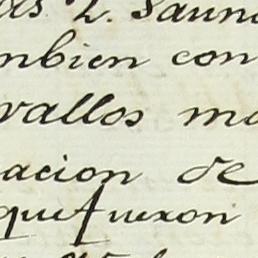 as L. Saund
mbien con
vallos ma
acion de
que fueron